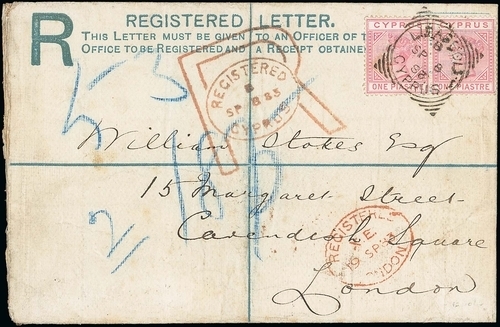 R
REGISTERED LETTER.
THIS LETTER MUST BE GIVEN TO AN OFFICER OF T
OFFICE TO BE REGISTERED AND A RECEIPT OBTAINE
CYPRUS CYPRUS
ONE PIASTRE ONE PIASTRE
SP 8
CYPRUS
R
REGISTERED
SP 8 83
CYPRUS
5-3
William Stokes Esq
15 Margaret Street
2
Cavendish Square
London
REGISTERED
LONDON